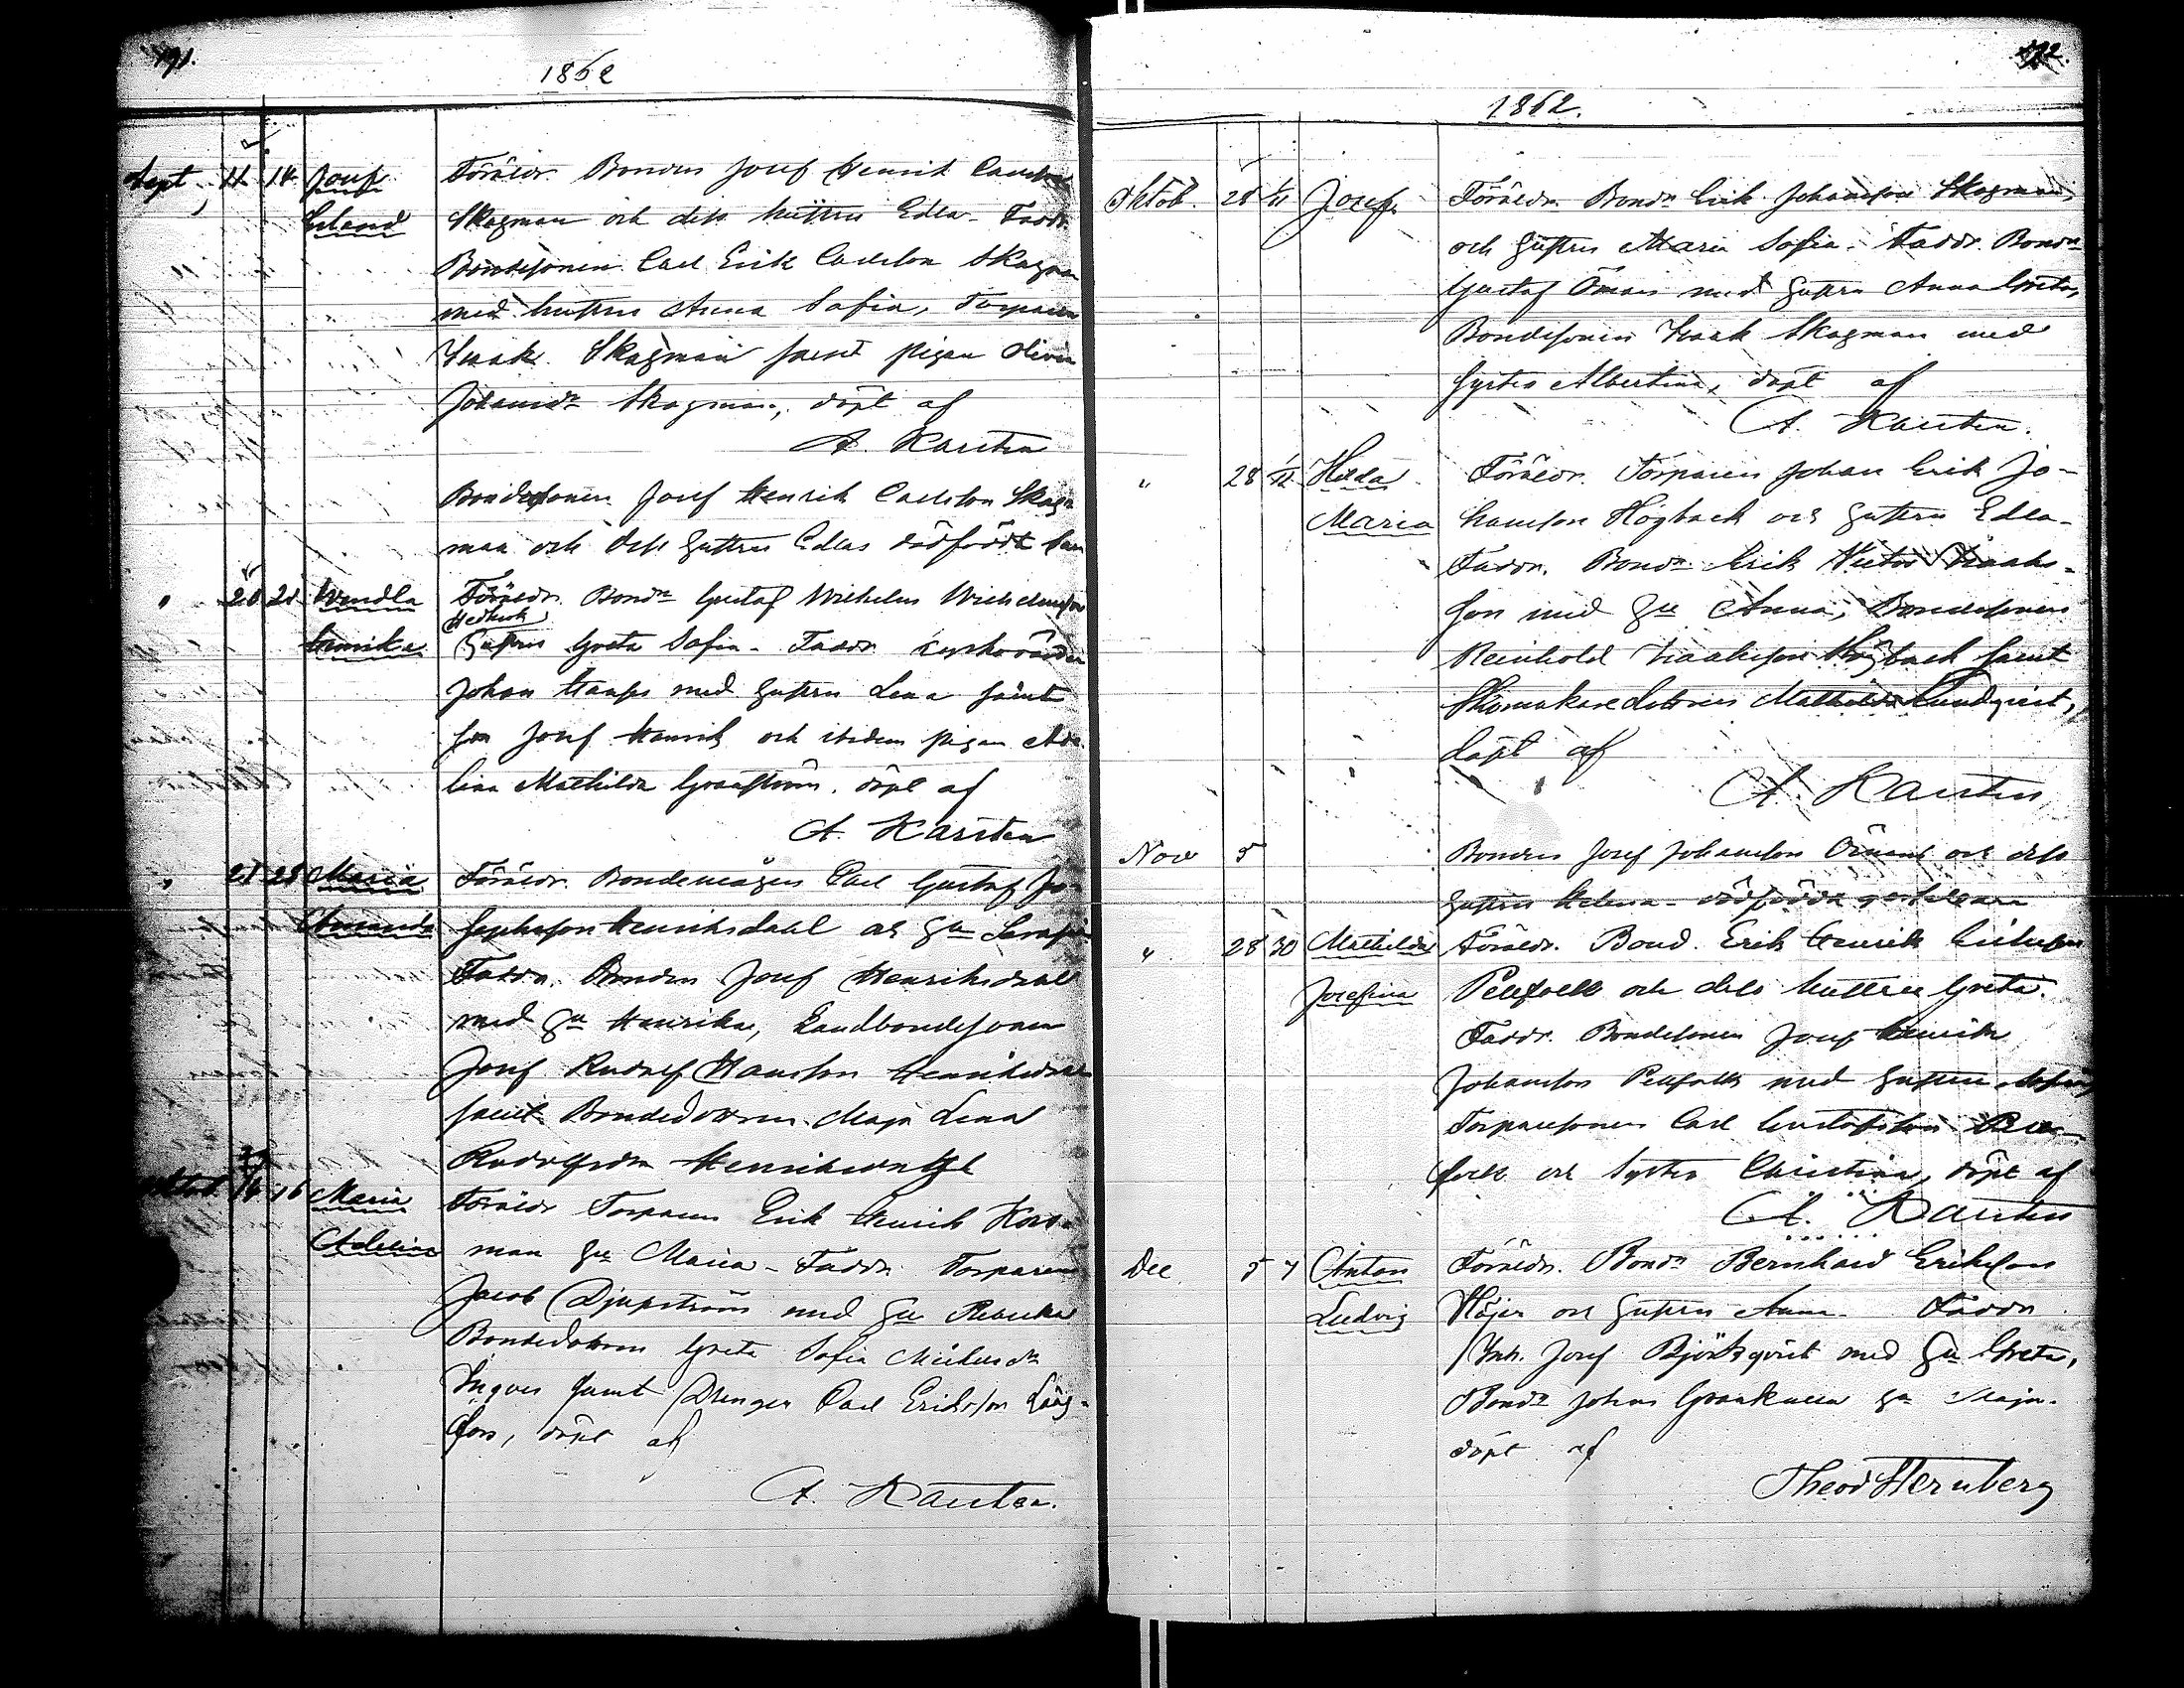 191.
1862
Sept. 11 14 Josef Föräldr. Bonden Josef Henrik Carlson
Erland Skogman och dess hustru Edla. Faddr.
Bondesonen Carl Erik Carlson Skogman
med hustru Anna Sofia, Torparen
Isaak Skogman samt pigan Olivia
Johansdr Skogman, döpt af
A. Karsten
Bondesonen Josef Henrik Carlson Skog-
man och dess hustru Edlas dödfödde son
" 20 21 Wendla Föräldr. Bondn Gustaf Wilhelm Wilhelmson
Hedkrok
Henrika hustrun Greta Sofia. Faddr. Kyrkovärden
Johan med hustru Lena samt
son Josef Henrik och pigan Ade-
lina Mathilda Granström. döpt af
A. Karsten
" 21 28 Maria Föräldr. Bondemågen Carl Gustaf Jo-
Amanda sephsson Henriksdahl och hu Serafia
Faddr. Bonden Josef Henriksdal
med hu Henrika, Landbondesonen
Josef Rudolf Hanson Henriksdal
samt Bondedottren Maja Lena
Rudolfsdr Henriksdahl
Oktob. 14 16 Maria Föräldr Torparen Erik Henrik Kors-
Adelina man hu Maria. Faddr. Torparen
Jacob Djupström med hu Rebecka
Bondedottren Greta Sofia Mickelsdr
Ingves samt Drengen Carl Eriksson Lång-
fors, döpt af
A. Karsten.
192.
1862.
Oktob. 28 1/11 Josef Föräldr. Bondn Erik Johanson Skogman,
och hustru Maria Sofia. Faddr. Bondn
Gustaf Öman med hustru Anna Greta,
Bondesonen Isaak Skogman med
syster Albertina, döpt af
A. Karsten.
" 28 Hilda Föräldr. Torparen Johan Erik Jo-
Maria hanson Högback och hustru Edla.
Faddr. Bondn Erik Victor Isaaks-
son med hu Anna, Bondesonen
Reinhold Isaakson Högback samt
Skomakaredottren Mathilda Lundqvist,
döpt af
A. Karsten
Nov 5 Bonden Josef Johanson Öman och dess
hustru Helena dödfödda gossebarn
" 28 30 Mathilda Föräldr. Bond. Erik Henrik
Josefina Pellfolk och dess hustru Greta.
Faddr. Bondesonen Josef Henrik
Johanson Pellfolk med hustru Sofia,
Torparesonen Carl Gustafson Pell-
folk och syster Christina, döpt af
A. Karsten
Dec. 5 7 Anton Föräldr. Bondn Bernhard Erikson
Ludvig Höjer och hustru Anna. Faddr
Inh. Josef Björkqvist med hu Greta,
Bondn Johan Grankulla hu Maja.
döpt af
Theod Sternberg